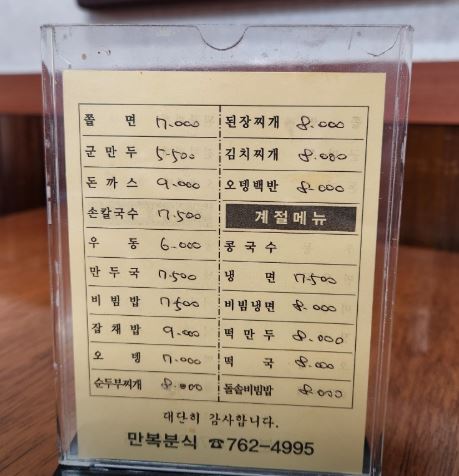 쫄 면 7.000
군 만 두 5.500
돈 까 스 9.000
손칼국수 7.500
우 동 6.000
만 두 국 7.500
비 빔 밥 7.500
잡 채 밥 9.000
오 뎅 7.000
순두부찌개 8.000
된장찌개 8.000
김치찌개 8.000
오뎅백반 8.000
계절메뉴
콩 국 수
냉 면 7.500
비빔냉면 8.000
떡 만 두 8.000
떡 국 8.000
돌솥비빔밥 8.000
대단히 감사합니다.
만복분식 ☎762-4995